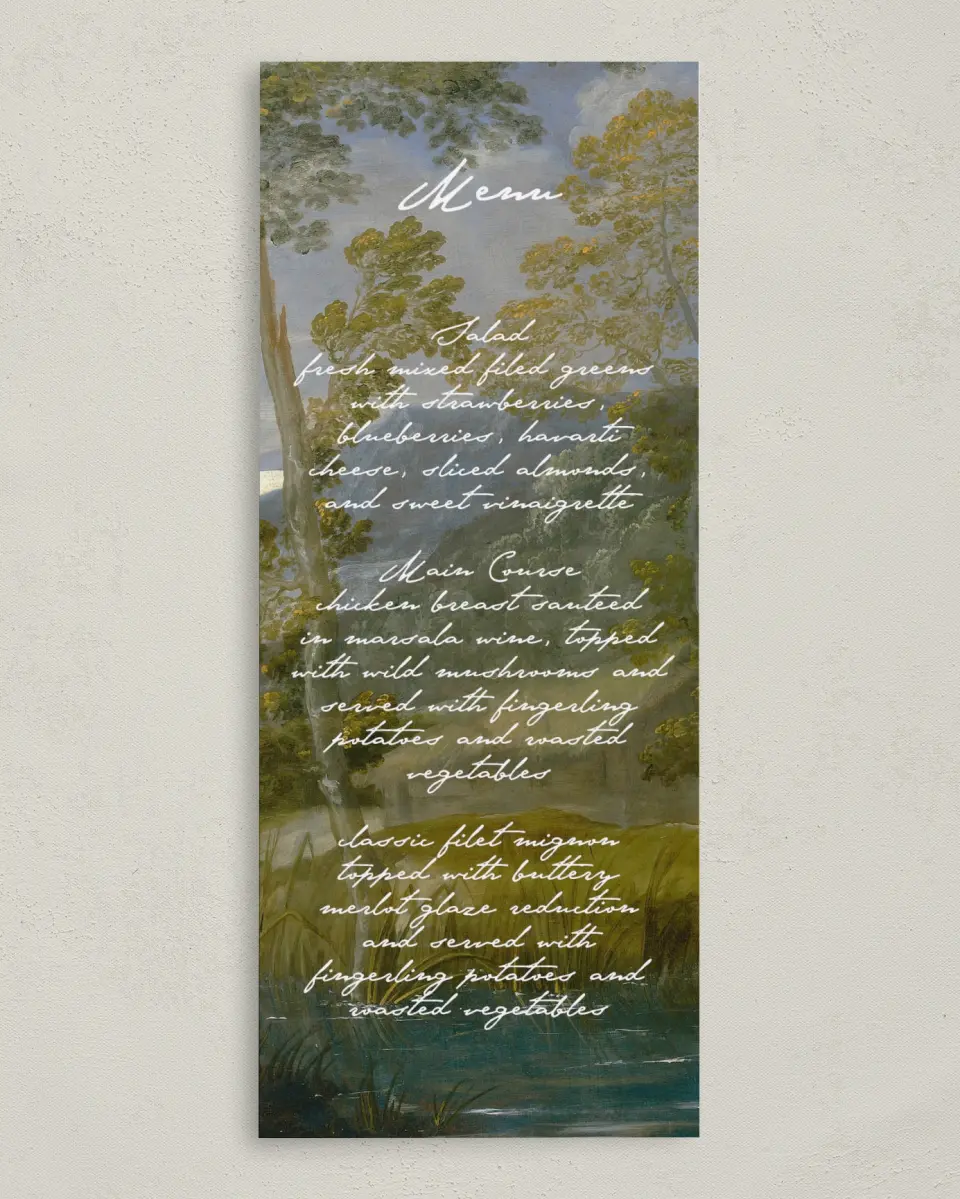 Menu
Salad
fresh mixed filed greens
with strawberries,
blueberries, havarti
cheese, sliced almonds,
and sweet vinaigrette
Main Course
chicken breast sauteed
in marsala wine, topped
with wild mushrooms and
served with fingerling
potatoes and roasted
vegetables
classic filet mignon
topped with buttery
merlot glaze reduction
and served with
fingerling potatoes and
roasted vegetables